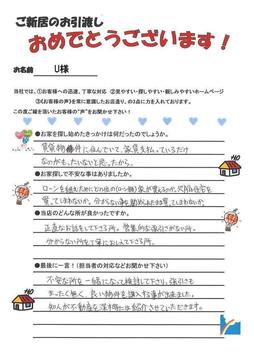 ご新居のお引渡し
おめでとうございます!
お名前 U様
当社では、①お客様への迅速、丁寧な対応 ②見やすい・探しやすい・親しみやすいホームページ
③《お客様の声》を常に意識したお店造り。の3点に力を入れております。
この度ご縁を頂いたお客様の“声”をお聞かせ下さい!
●お家を探し始めたきっかけは何だったのでしょうか。
賃貸物件に住んでいて、家賃支払っているだけ
なのがもったいないと思ったから。
●お家探しで不安な事はありましたか。
ローンを組むためにどの位の
買ってしまわないか。分からない
●当店のどんな所が良かったですか。
正直なお話をして下さる所。営業的な強引さがない所。
分からない所を丁寧におしえて下さる所。
●最後に一言!(担当者の対応などお聞かせ下さい)
不安な所を一緒になって検討して下さり、強引さも
まったく無く、良い物件を購入する事が出来ました。
知人が不動産を探す時には紹介させていただきます。